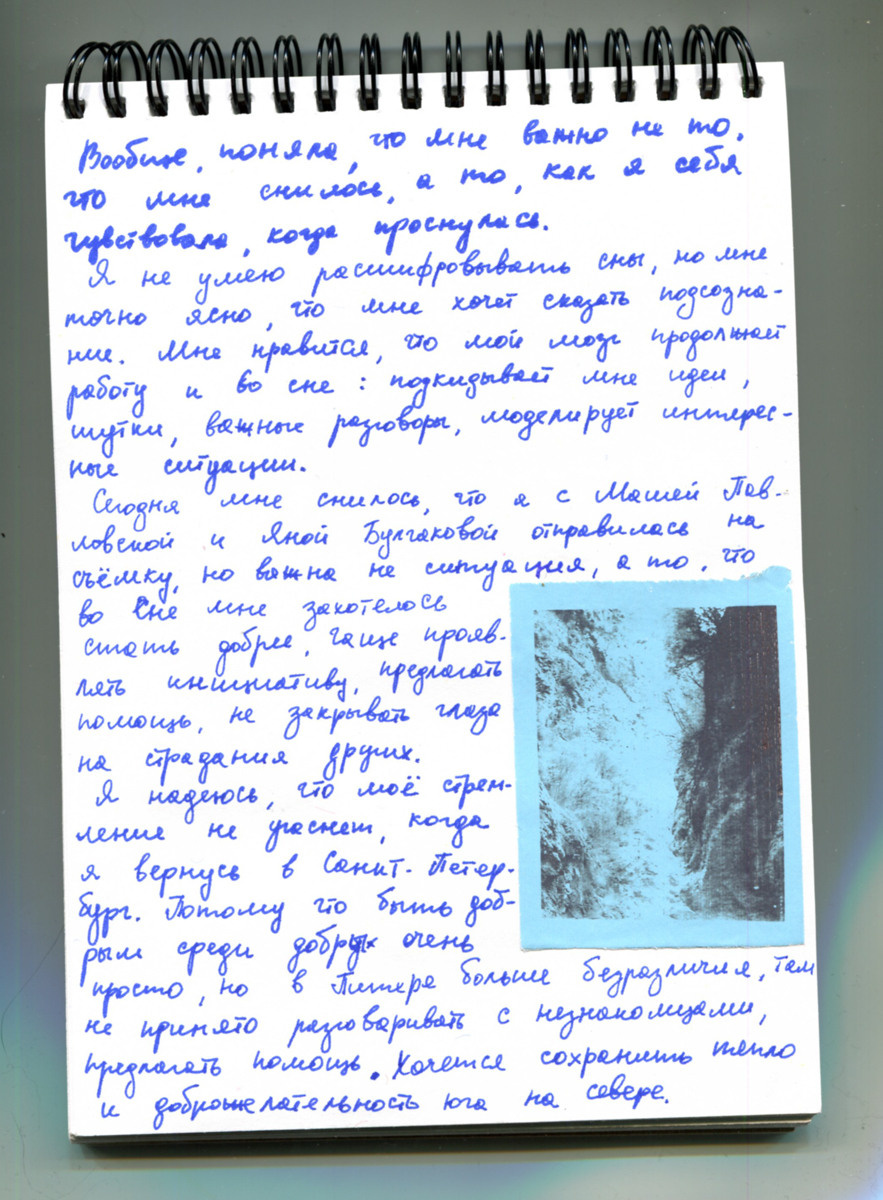 Вообще, поняла, что мне важно не то,
что мне снилось, а то, как я себя
чувствовала, когда проснулась.
Я не умею расшифровывать сны, но мне
точно ясно, что мне хочет сказать подсозна-
ние. Мне нравится, что мой мозг продолжает
работу и во сне: подкидывает мне идеи,
шутки, важные разговоры, моделирует интерес-
ные ситуации.
Сегодня мне снилось, что я с Машей Пав-
ловской и Яной Булгаковой отправилась на
съёмку, но важна не ситуация, а то, что
во сне мне захотелось
стать добрее, чаще прояв-
лять инициативу, предлагать
помощь, не закрывать глаза
на страдания других.
Я надеюсь, что моё стрем-
ление не угаснет, когда
я вернусь в Санкт-Петер-
бург. Потому что быть доб-
рым среди добрых очень
просто, но в Питере больше безразличия, там
не принято разговаривать с незнакомцами,
предлагать помощь. Хочется сохранить тепло
и доброжелательность юга на севере.